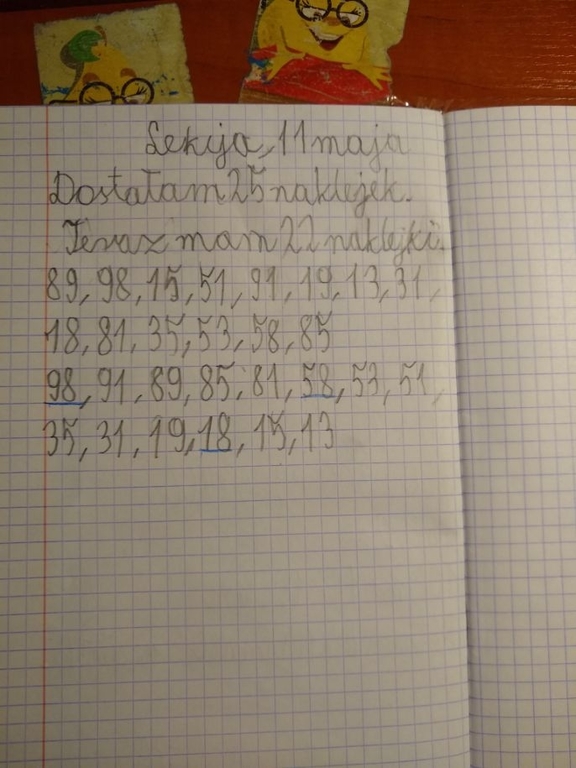 Lekcja, 11 maja
Dostałam 25 naklejek.
Teraz mam 22 naklejki.
89, 98, 15, 51, 91, 19, 13, 31,
18, 81, 35, 53, 58, 85
98, 91, 89, 85, 81, 58, 53, 51,
35, 31, 19, 18, 15, 13